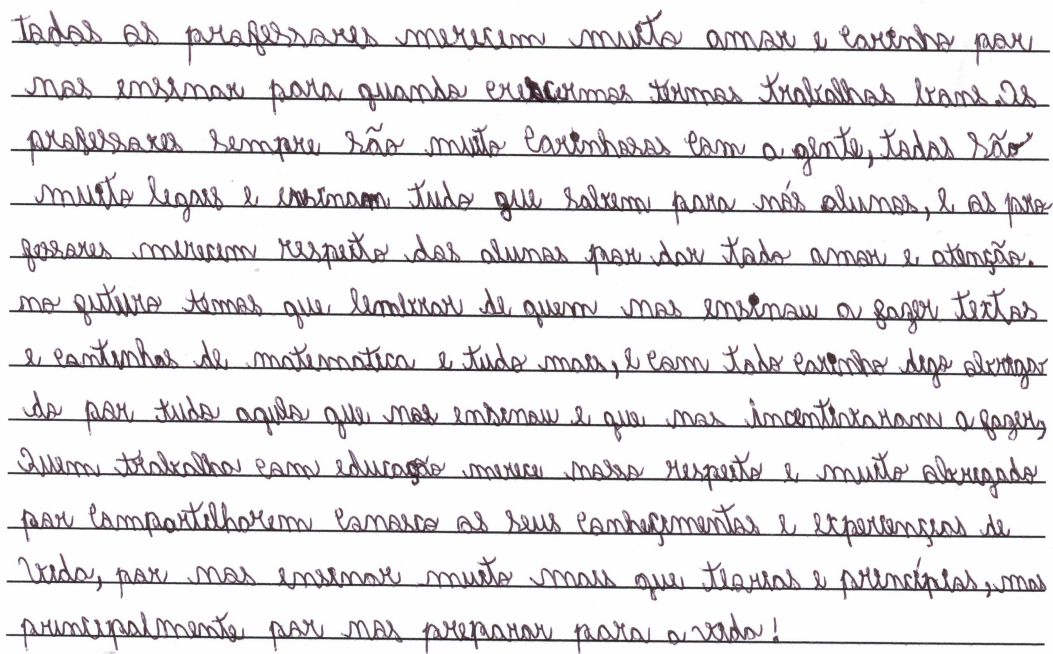 todos os professores merecem muito amor e carinho por
nos ensinar para quando crescermos termos trabalhos bons. Os
professores sempre são muito carinhosos com a gente, todos são
muito legais e ensinam tudo que sabem para nós alunos, e os pro
fessores merecem respeito dos alunos por dar todo amor e atenção.
no futuro temos que lembrar de quem nos ensinou a fazer textos
e continhas de matematica e tudo mais, e com todo carinho digo obriga
do por tudo aquilo que nos ensinou e que nos incentivaram a fazer,
Quem trabalha com educação merece nosso respeito e muito obrigado
por compartilharem conosco os seus conheçimentos e experiençias de
vida, por nos ensinar muito mais que teorias e princípios, mas
principalmente por nos preparar para a vida!